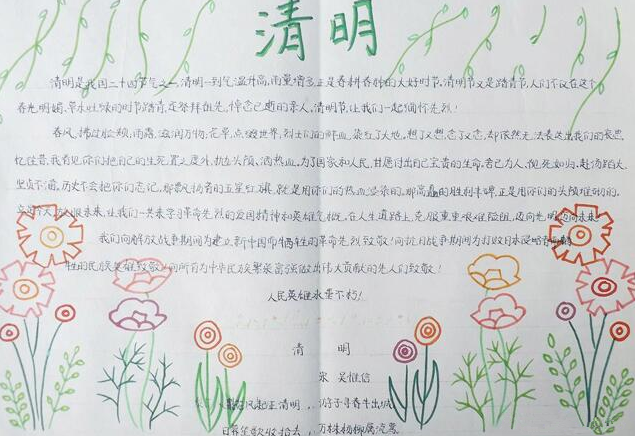 清明
清明是我国二十四节气之一,清明一到气温升高,雨量增多,正是春耕春种的大好时节。清明节又是踏青节,人们不仅在这个
春光明媚、草木吐绿的时节踏青,还祭拜祖先,悼念已逝的亲人。清明节,让我们一起缅怀先烈!
春风,拂过脸颊;雨露,滋润万物;花草,点缀世界,烈士们的鲜血,染红了大地。想了又想,念了又念,却依然无法表达出我们的哀思。
忆往昔,我看见你们把自己的生死置之度外,抛头颅,洒热血,为了国家和人民,甘愿付出自己宝贵的生命,舍己为人,视死如归,赴汤蹈火
历史不会把你们忘记,那飘扬着的五星红旗,就是用你们的热血浸染的,那高矗的胜利丰碑,正是用你们的头颅堆砌的。
让我们一共来学习革命先烈的爱国精神和英雄气概,在人生道路上,克服重重艰难险阻,迈向光明
我们向解放战争期间为建立新中国而牺牲的革命先烈致敬!向抗日战争期间为打败日本侵略者而
牲的民族英雄致敬!向所有为中华民族繁荣富强做出伟大贡献的先人们致敬!
人民英雄永垂不朽!
清 明
宋 吴惟信
风起正清明,子寻春半出城
日暮笙歌收拾去,万株杨柳属流莺